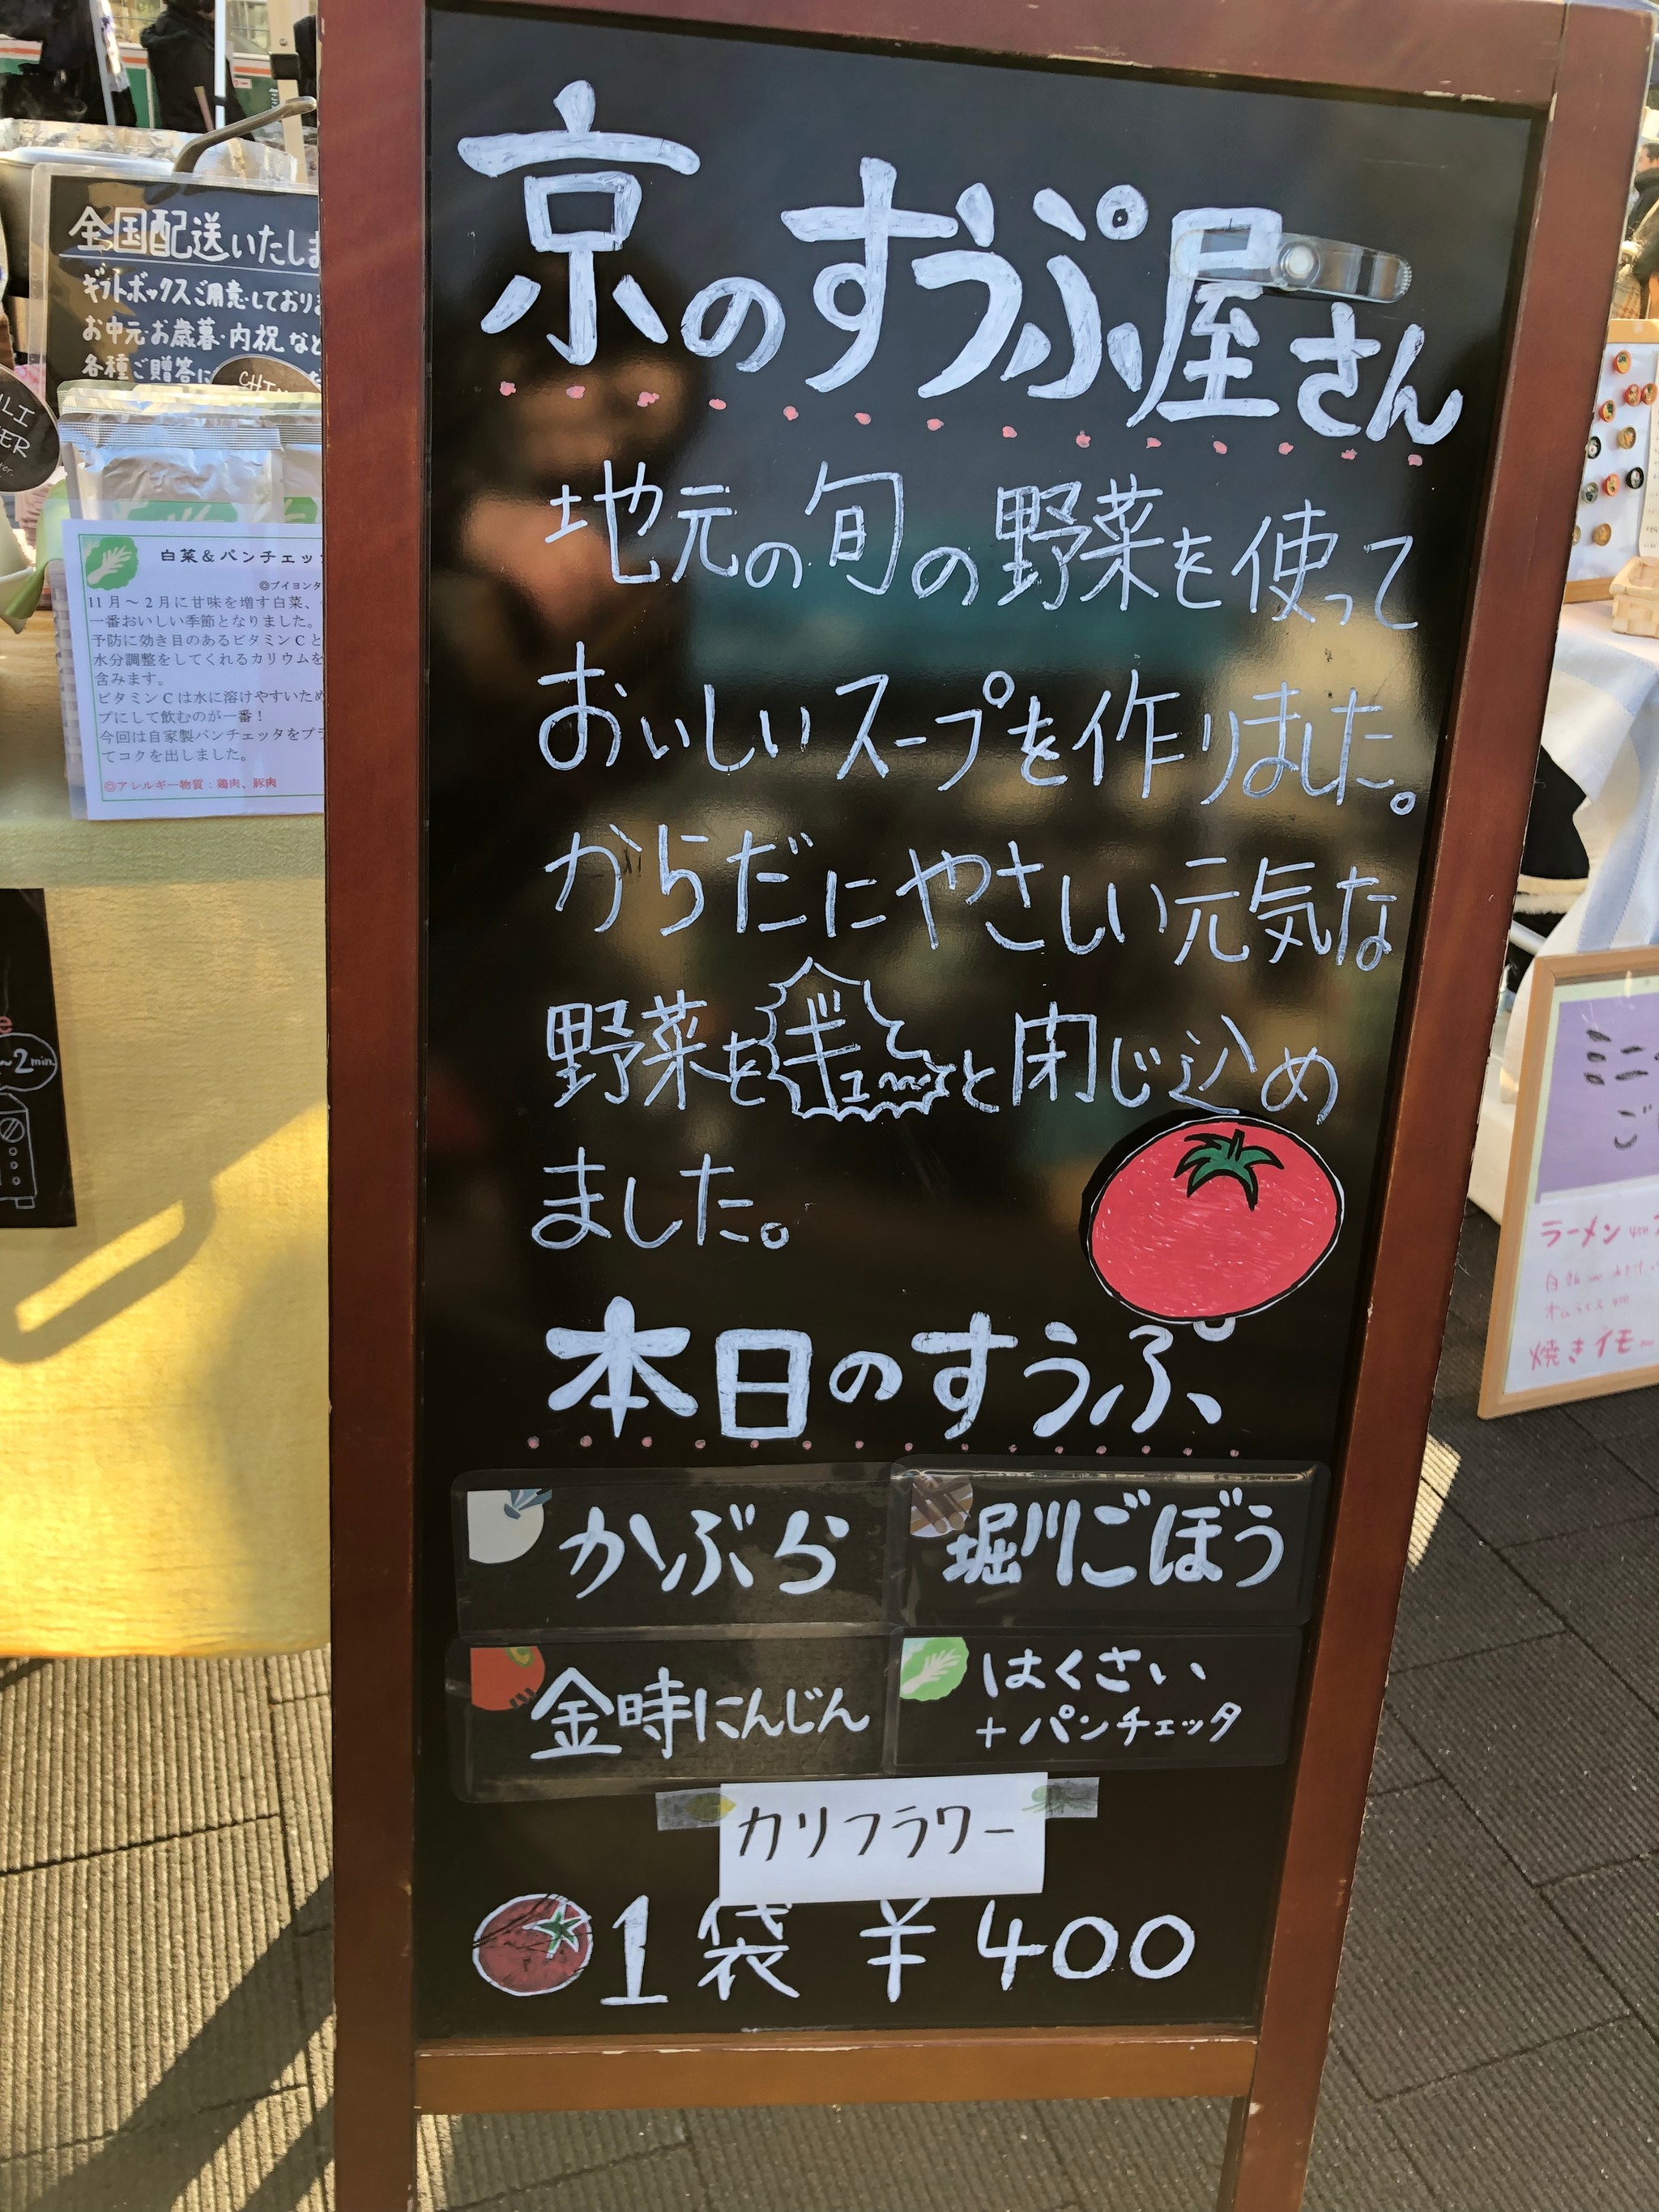 京のすうぷ屋さん
地元の旬の野菜を使って
おいしいスープを作りました。
からだにやさしい元気な
野菜をギューっと閉じ込め
ました。
本日のすうぷ
かぶら
堀川ごぼう
金時にんじん
はくさい
+パンチェッタ
カリフラワー
1袋 ¥400
全国配送いたしま
ギフトボックスご用意しておりま
お中元・お歳暮・内祝など
各種ご贈答に
白菜&パンチェッ
◎ブイヨンタ
11月~2月に甘味を増す白菜、
一番おいしい季節となりました。
予防に効き目のあるビタミンCと
水分調整をしてくれるカリウムを
含みます。
ビタミンCは水に溶けやすいため
プにして飲むのが一番!
今回は自家製パンチェッタをプラ
てコクを出しました。
◎アレルギー物質:鶏肉、豚肉
~2min.
ラーメン
焼きイモ